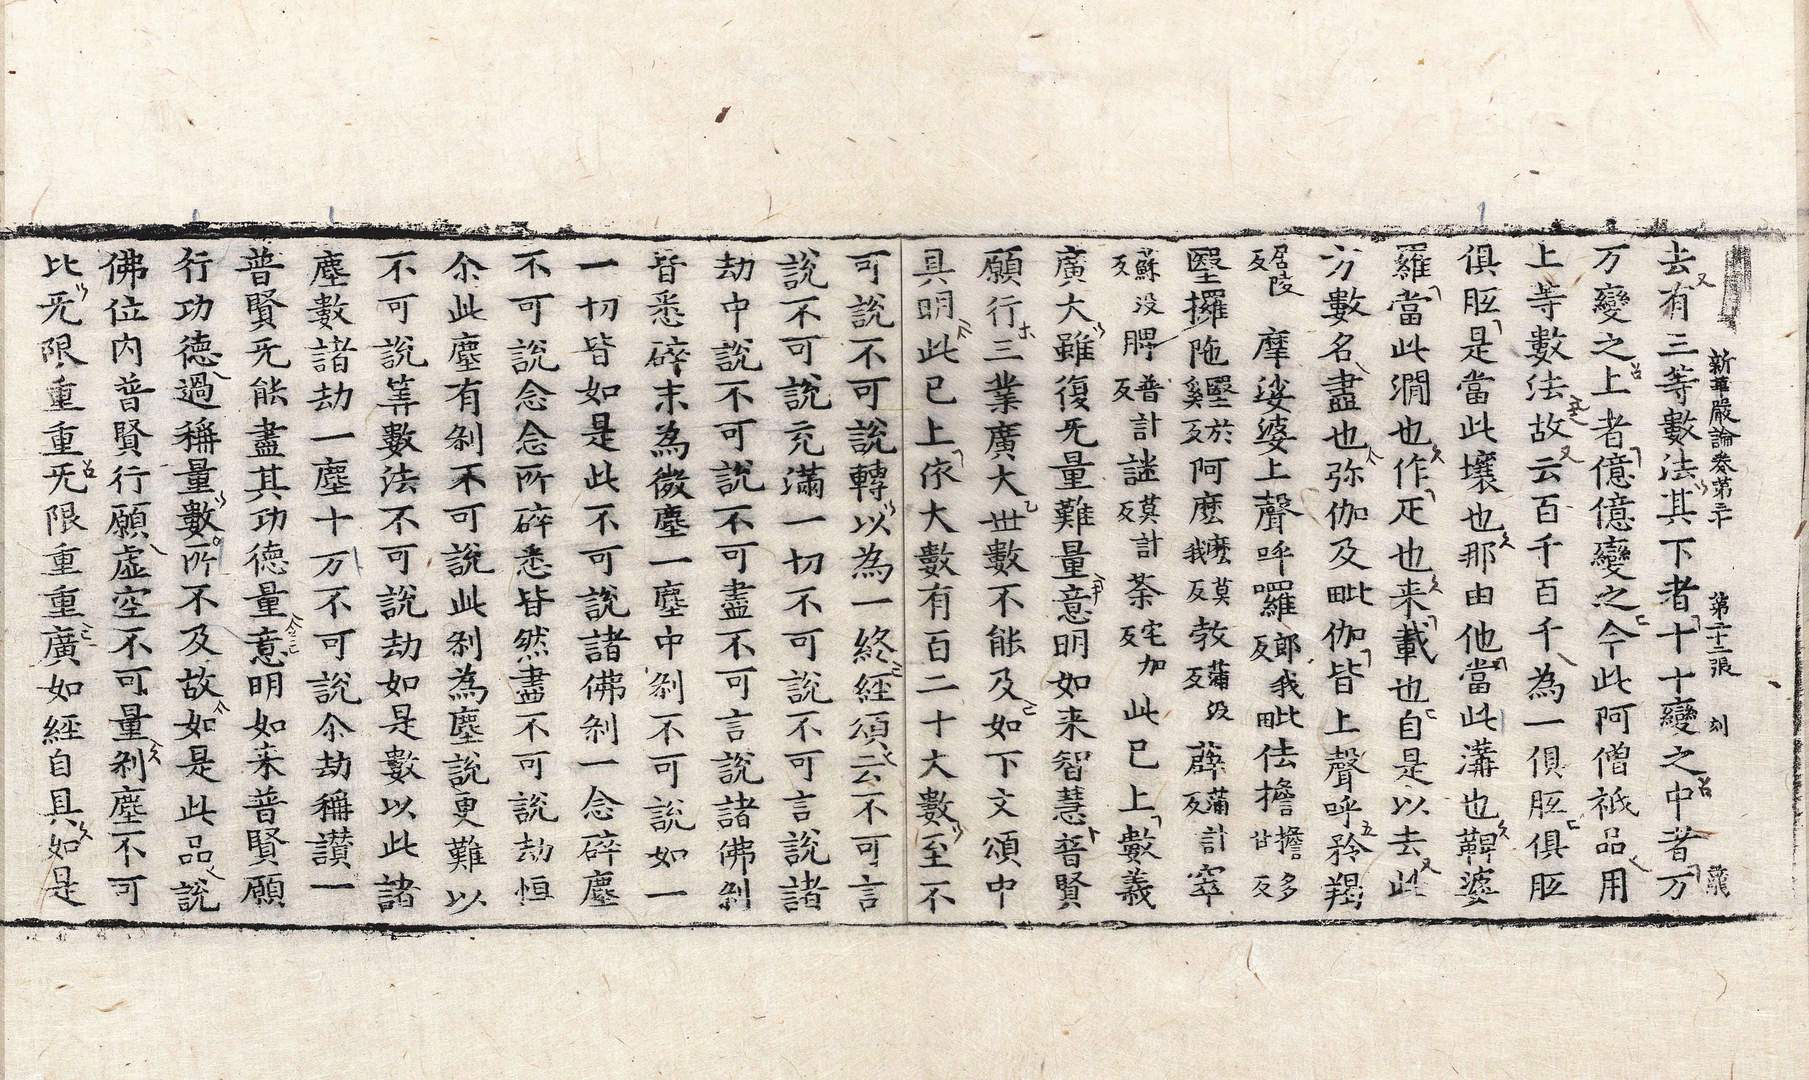 新華嚴論卷第三十 第二十二張 刻 茂
去有三等數法其下者十十變之中者万
万變之上者億億變之今此阿僧祇品用
上等數法故云百千百千為一俱胝俱胝
俱胝是當此壤也那由他當此溝也鞞婆
羅當此澗也作疋也来載也自是以去此
方數名盡也弥伽及毗伽皆上聲呼矜羯
居陵反 摩娑婆上聲呼囉郎我反毗佉擔擔多甘反
堅攞陁雞堅於反阿麽麽莫我反教蒲没反薜蒲計反窣
蘇没反脾普計反謎莫計反荼宅加反此已上數義
廣大雖復旡量難量意明如来智慧普賢
願行三業廣大世數不能及如下文頌中
具明此已上依大數有百二十大數至不
可說不可說轉以為一終經頌云不可言
說不可說充滿一切不可說不可言說諸
劫中說不可說不可盡不可言說諸佛剎
皆悉碎末為微塵一塵中剎不可說如一
一切皆如是此不可說諸佛剎一念碎塵
不可說念念所碎悉皆然盡不可說劫恒
尒此塵有剎不可說此剎為塵說更難以
不可說筭數法不可說劫如是數以此諸
塵數諸劫一塵十万不可說尒劫稱讚一
普賢旡能盡其功德量意明如来普賢願
行功德過稱量數所不及故如是此品說
佛位内普賢行願虛空不可量剎塵不可
比旡限重重旡限重重廣如經自具如是